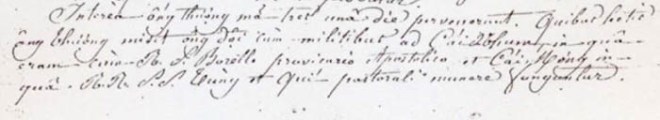 Interea ông thuong má tres unâ die pervenerunt. Quibus lectis
ông thuong misit ông đôc cum militibus ad Cái Nhum, in quâ
eram cum R. P. Borelle provicario Apostolico et Cái Mông in
quâ R.R. P.P. Tung et Qui pastorali munere funguntur.